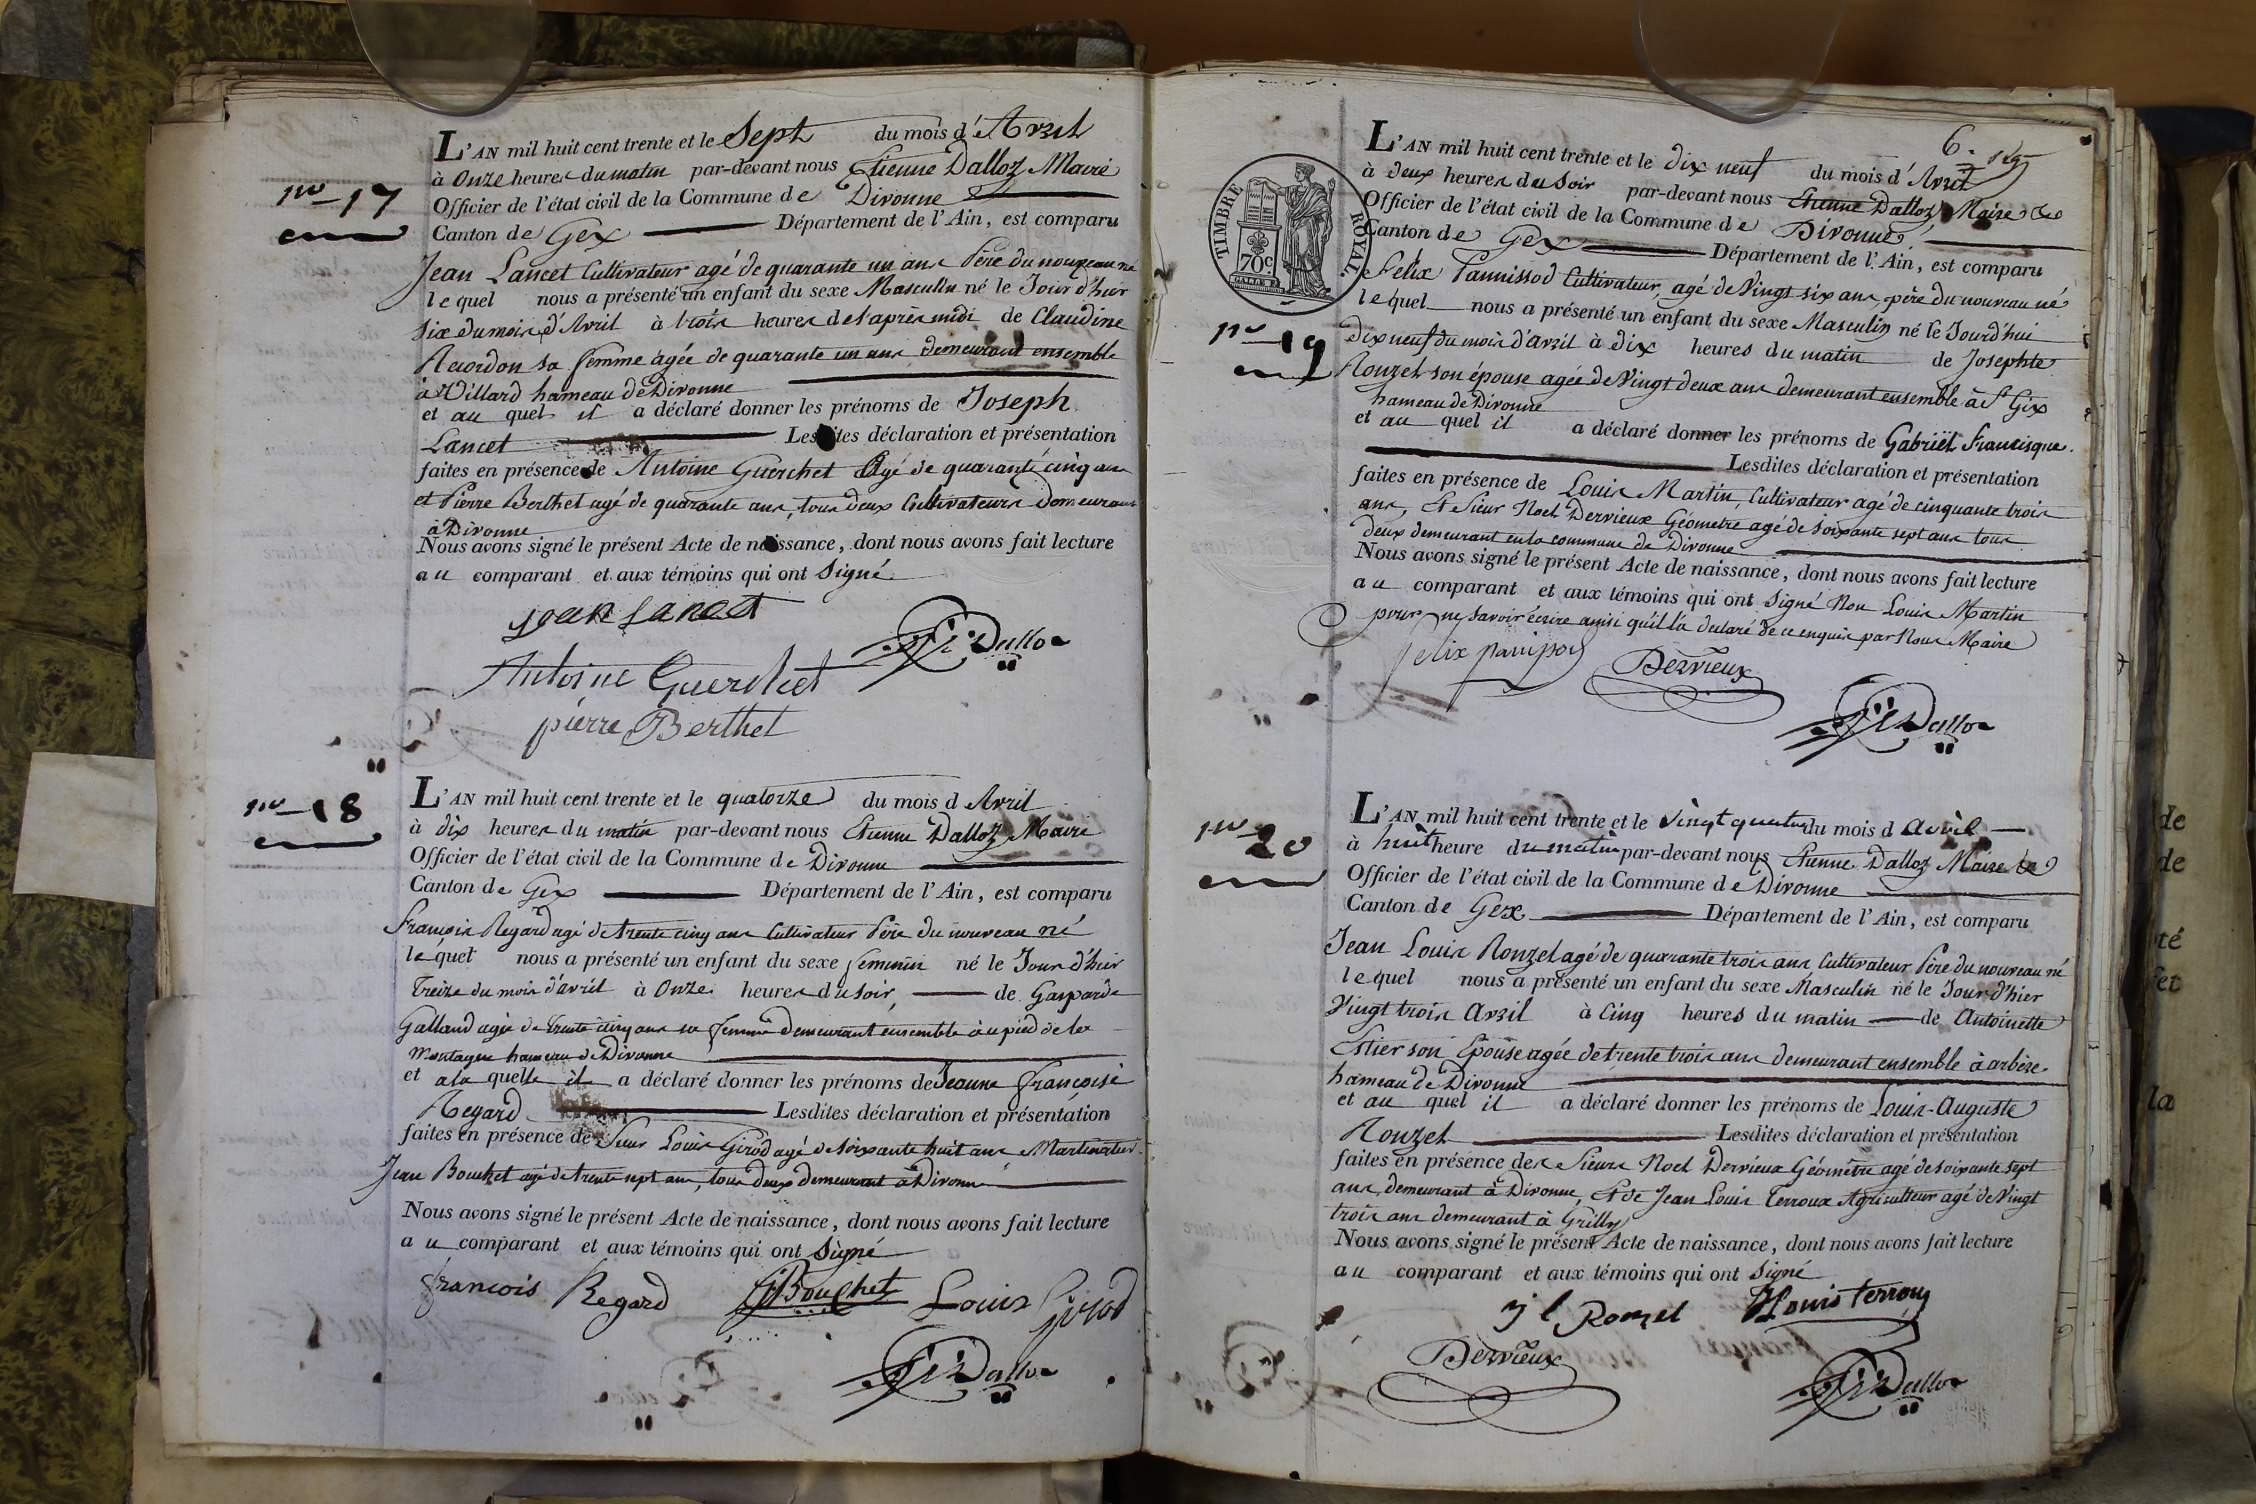 L'AN mil huit cent trente et le Sept du mois d'Avril
à Onze heures du matin par-devant nous Etienne Dalloz Maire
Officier de l'état civil de la Commune de Divonne
Canton de Gex Département de l'Ain, est comparu
Jean Lancet Cultivateur agé de quarante un ans Père du nouveau né
lequel nous a présenté un enfant du sexe Masculin né le Jour d'hier
six du mois d'Avril à trois heures de l'apres midi de Claudine
sa femme agée de quarante un ans demeurant ensemble
à Villard hameau de Divonne
et au quel il a déclaré donner les prénoms de Joseph
Lancet Lesdites déclaration et présentation
faites en présence de Antoine Guerchet Agé de quarante cinq ans
et Pierre Berthet agé de quarante ans, tous deux Cultivateurs demeurant
à Divonne
Nous avons signé le présent Acte de naissance, dont nous avons fait lecture
au comparant et aux témoins qui ont Signé
jean lancet
Dalloz
Antoine Guerchet
pierre Berthet
no 17
no 18
L'AN mil huit cent trente et le quatorze du mois d Avril
à dix heures du matin par-devant nous Etienne Dalloz Maire
Officier de l'état civil de la Commune de Divonne
Canton de Gex Département de l'Ain, est comparu
François Regard agé de trente cinq ans Cultivateur Père du nouveau né
lequel nous a présenté un enfant du sexe feminin né le Jour d'hier
Treize du mois d'avril à Onze heures du soir, de Gasparde
Galland agée de trente cinq ans sa femme demeurant ensemble au pied de la
montagne hameau de Divonne
et a la quelle il a déclaré donner les prénoms de Jeanne françoise
Regard Lesdites déclaration et présentation
faites en présence de Sieur Louis Girod agé de soixante huit ans
Jean Bouchet agé de trente sept ans, tous deux demeurant à Divonne
Nous avons signé le présent Acte de naissance, dont nous avons fait lecture
au comparant et aux témoins qui ont Signé
francois Regard Bouchet Louis Girod
Dalloz
6.
L'AN mil huit cent trente et le dix neuf du mois d'Avril
à deux heures du Soir par-devant nous Etienne Dalloz Maire de
Officier de l'état civil de la Commune de Divonne
Canton de Gex Département de l'Ain, est comparu
Félix Pannissod Cultivateur, agé de Vingt six ans, père du nouveau né
lequel nous a présenté un enfant du sexe Masculin né le Jourd'hui
dix neuf du mois d'avril à dix heures du matin de Josephte
Rouzet son épouse agée de Vingt deux ans demeurant ensemble à St Gix
hameau de Divonne
et au quel il a déclaré donner les prénoms de Gabriël francisque.
Lesdites déclaration et présentation
faites en présence de Louis Martin, Cultivateur agé de cinquante trois
ans, Et Sieur Noel Dervieux Géometre agé de soixante sept ans tous
deux demeurant en la commune de Divonne
Nous avons signé le présent Acte de naissance, dont nous avons fait lecture
au comparant et aux témoins qui ont Signé Non Louis Martin
pour ne savoir écrire ainsi qu'il l'a declaré de ce enquis par Nous Maire
Dervieux
Dalloz
TIMBRE ROYAL.
70c.
no 19
no 20
L'AN mil huit cent trente et le vingt quatre du mois d avril
à huit heure du matin par-devant nous Etienne Dalloz Maire de
Officier de l'état civil de la Commune de Divonne
Canton de Gex Département de l'Ain, est comparu
Jean Louis Rouzet agé de quarante trois ans Cultivateur Père du nouveau né
lequel nous a présenté un enfant du sexe Masculin né le Jour d'hier
Vingt trois Avril à Cinq heures du matin de Antoinette
Estier son Epouse agée de trente trois ans demeurant ensemble à arbère
hameau de Divonne
et au quel il a déclaré donner les prénoms de Louis-Auguste
Rouzet Lesdites déclaration et présentation
faites en présence des Sieurs Noel Dervieux Géomètre agé de soixante sept
ans, demeurant à Divonne, Et de Jean Louis Terroux Agriculteur agé de Vingt
trois ans demeurant à Grilly
Nous avons signé le présent Acte de naissance, dont nous avons fait lecture
au comparant et aux témoins qui ont Signé
j l Rouzet Louis terroux
Dervieux
Dalloz
de
de
té
et
la